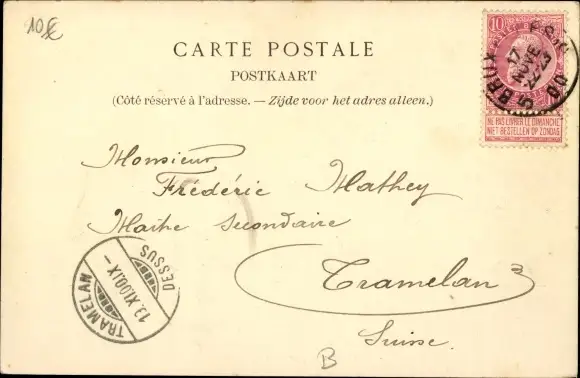 10€
CARTE POSTALE
POSTKAART
(Côté réservé à l'adresse. — Zijde voor het adres alleen.)
10
17
NOVE
22-23
00
5
NE PAS LIVRER LE DIMANCHE
NIET BESTELLEN OP ZONDAG
Monsieur
Frédéric Mathey
Maître Secondaire
Tramelan
Suisse.
TRAMELAN
DESSUS
19.XI.00.IX-
B